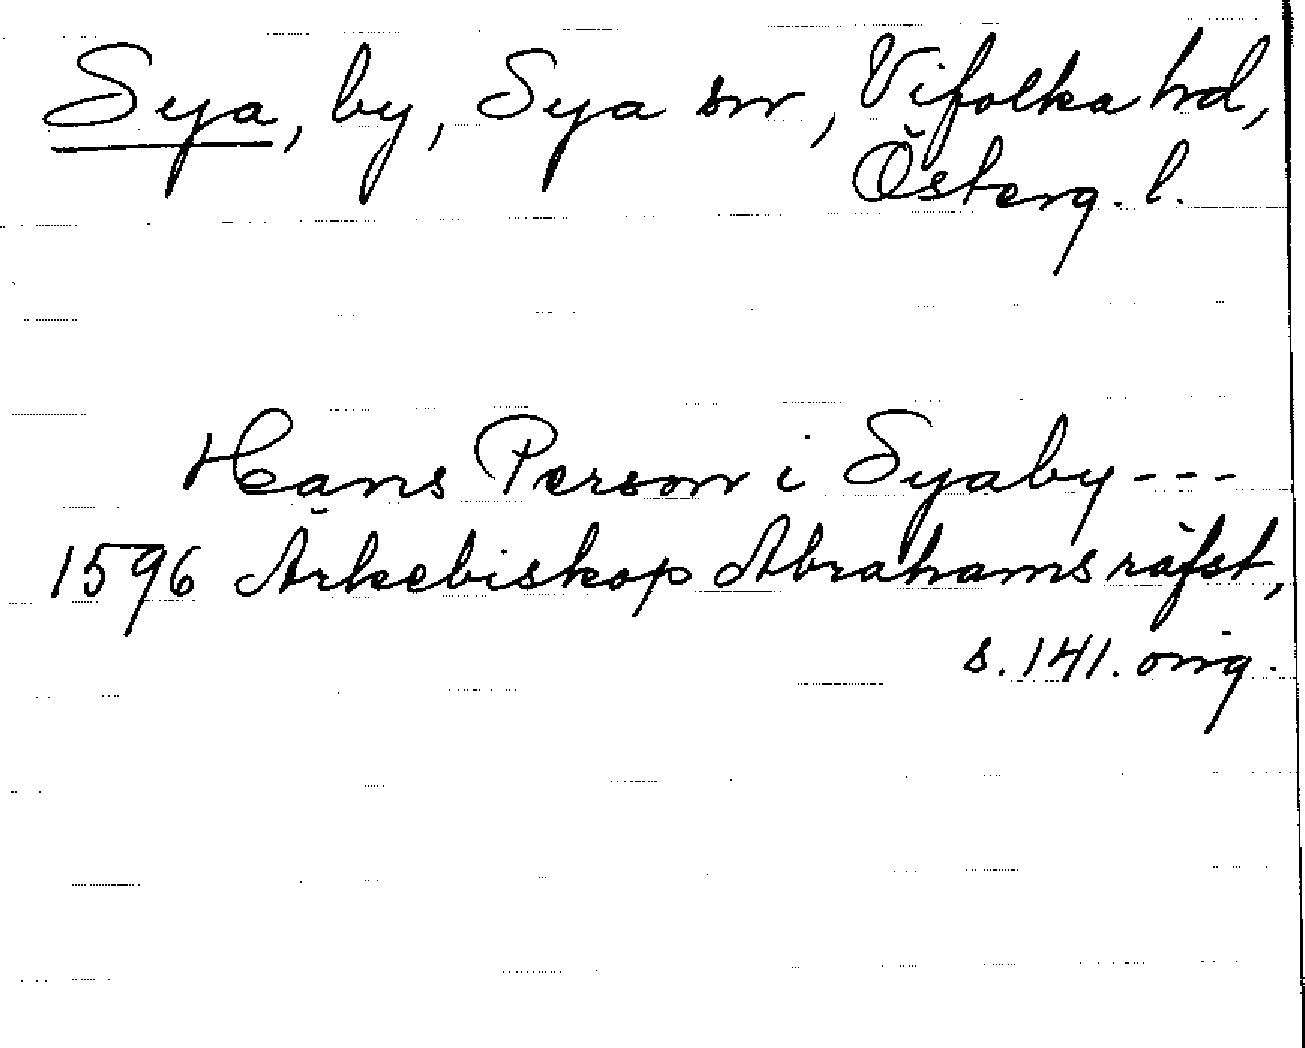 Sya, by, Sya sn, Vifolka hd,
Österg. l.
Hans Person i Syaby ---
1596 Ärkebiskop Abrahams räfst,
s. 141. orig.